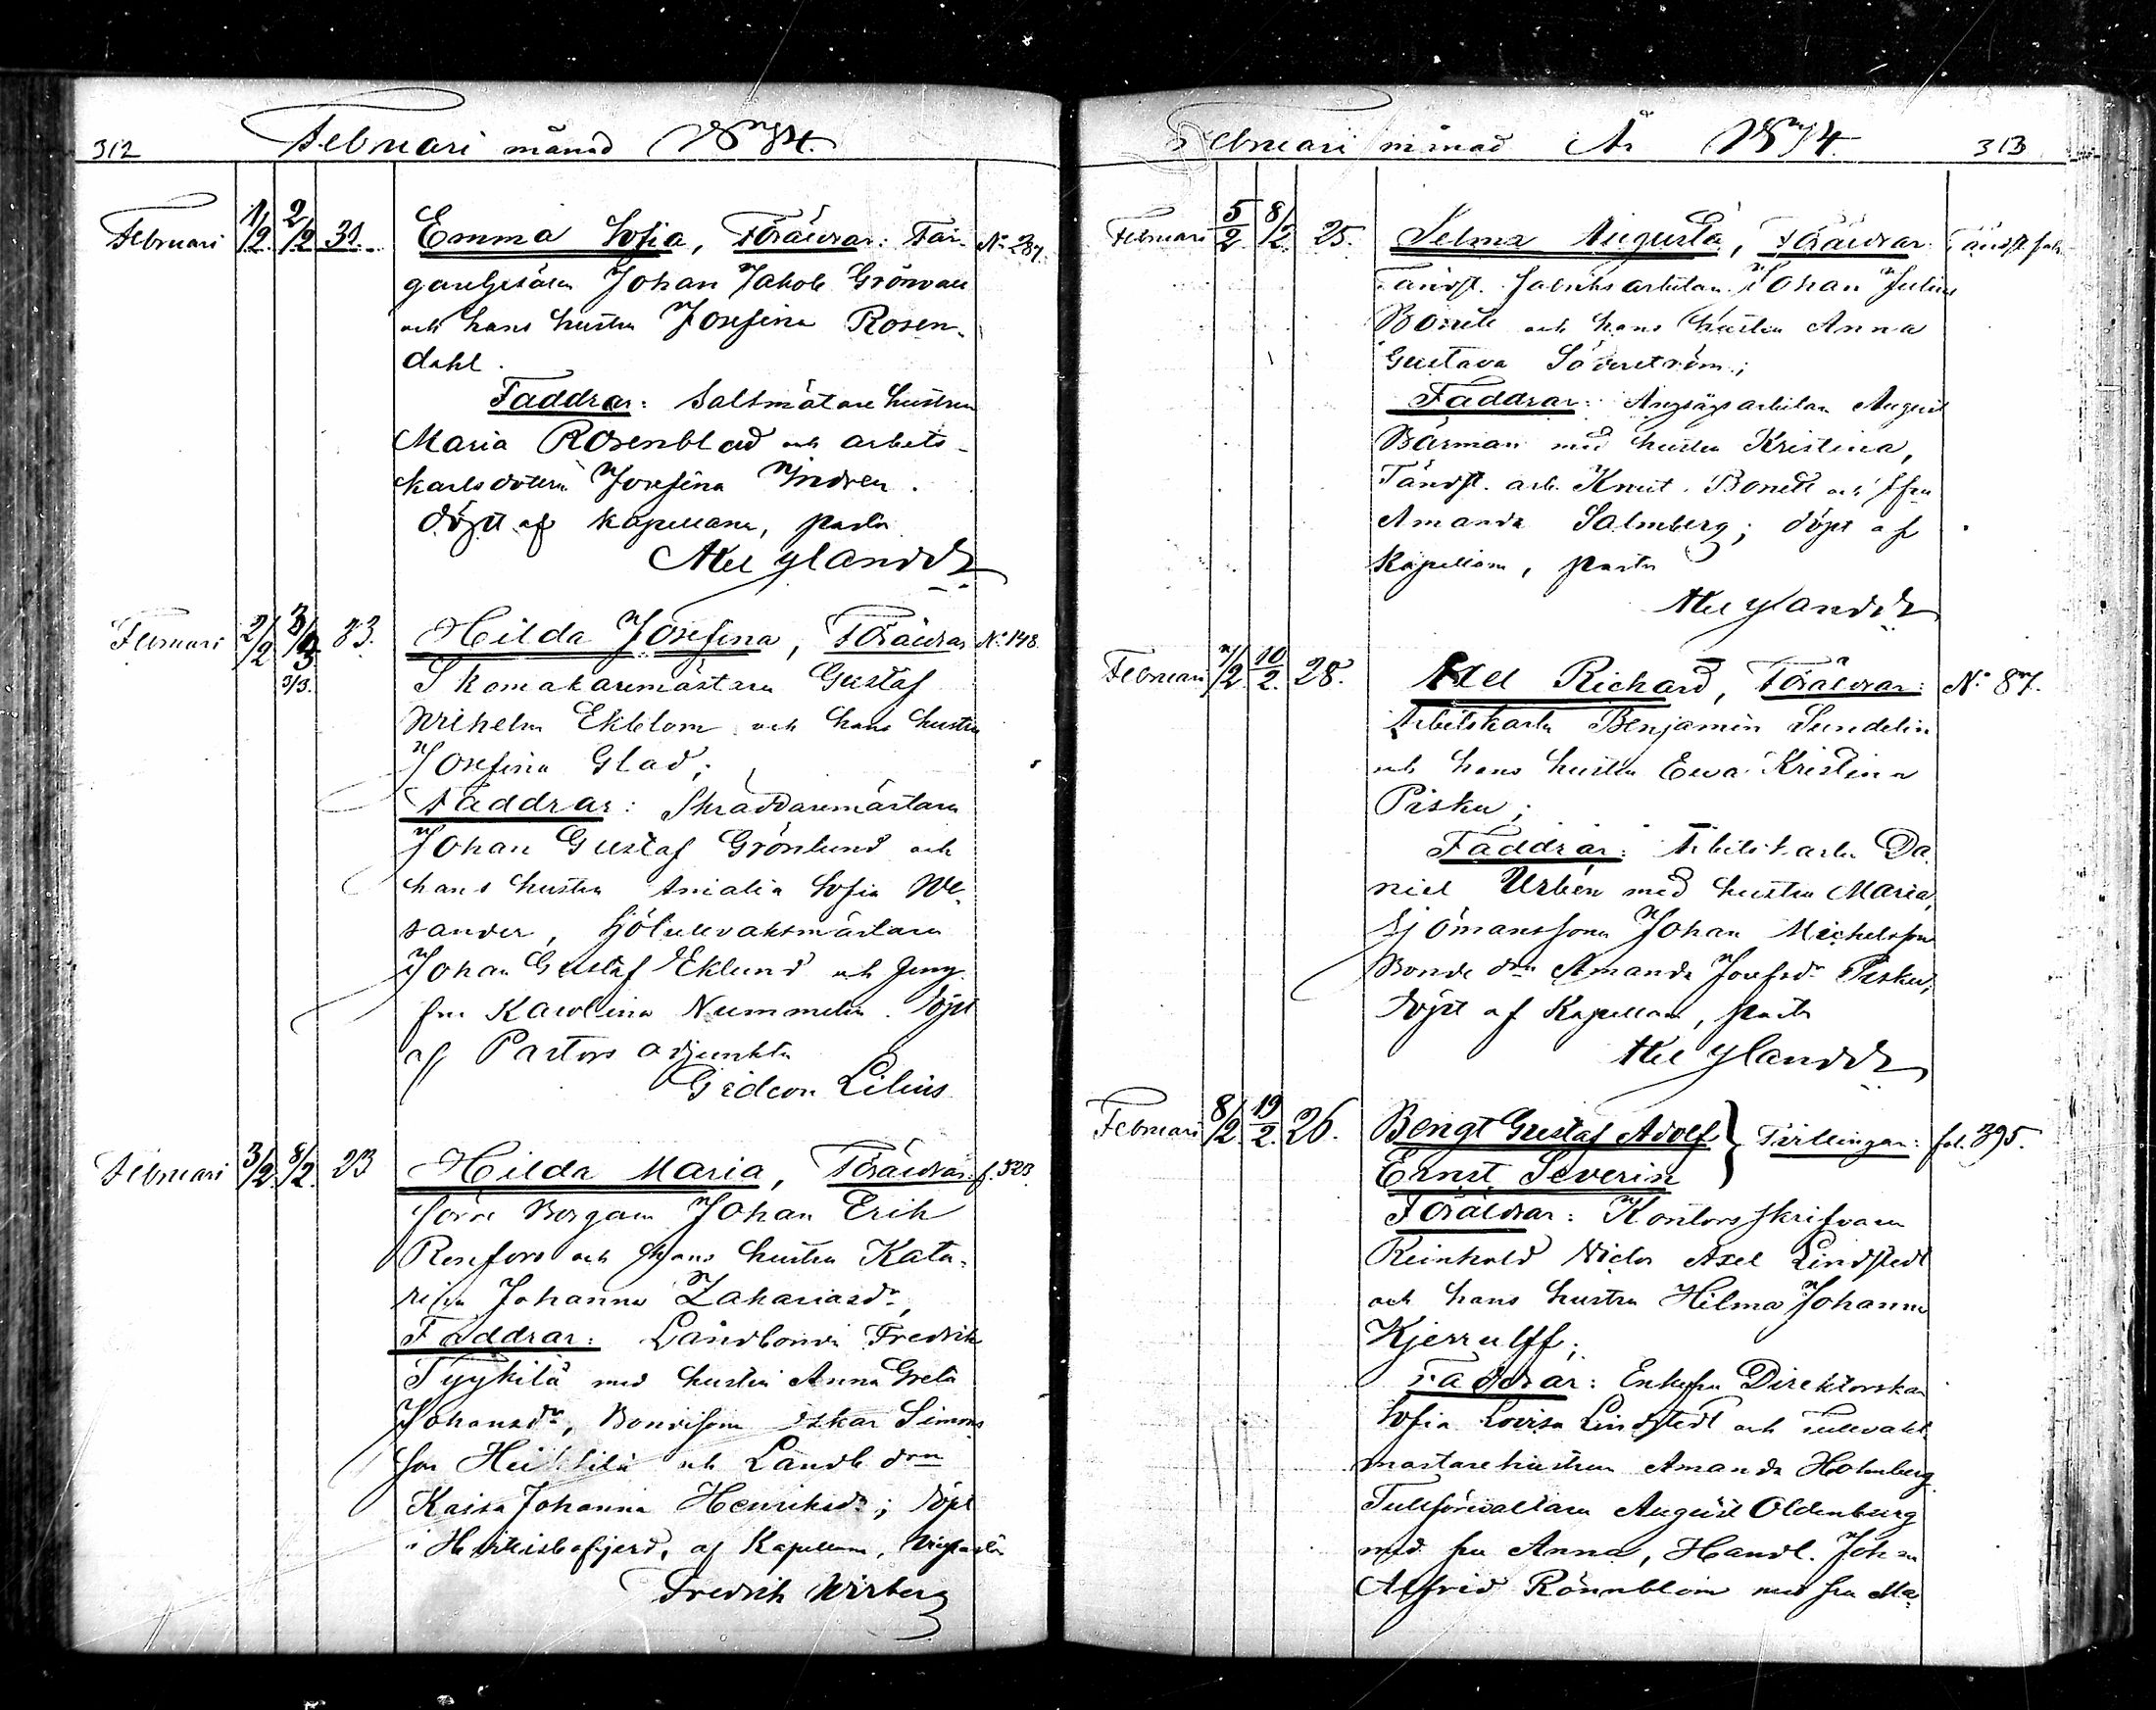 312 Februari månad 1874.
Februari 1/2. 2/2 31. Emma Sofia, Föräldrar: Fär- No 287.
garegesällen Johan Jakob Grönvall
och hans hustru Josefina Rosen-
dahl.
Faddrar: Saltmätare hustrun
Maria Rosenblad och arbets-
karlsdottern Josefina Indren.
döpt af kapellanen, pastor
Axel Ylander
Februari 2/2 3/3 3/3. 23. Hilda Josefina, Föräldrar No 148.
Skomakaremästaren Gustaf
Wilhelm Ekblom och hans hustru
Josefina Glad;
Faddrar: Skräddaremästaren
Johan Gustaf Grönlund och
hans hustru Amalia Sofia We-
sander, Sjötullvaktmästaren
Johan Gustaf Eklund och Jung-
frun Karolina Nummelin. döpt
af Pastors adjunkten
Gideon Lilius
Februari 3/2. 8/2. 23 Hilda Maria, Föräldrar: f. 323
förre Borgaren Johan Erik
Renfors och hans hustru Kata-
rina Johanna Zakariasdr,
Faddrar: Landbonden Fredrik
Tyykilä med hustru Anna Greta
Johansdr, Bondesonen Oskar Simons
son Heikkilä och Landb drn
Kaisa Johanna Henriksdr; döpt
i af Kapellanen, Vicepastor
Fredrik Wirberg
Februari månad År 1874. 313
Februari 5/2. 8/2. 25. Selma Augusta, Föräldrar: Tändst. fabr
Tändst. fabriksarbetaren Johan Julius
Bonde och hans hustru Anna
Gustava Söderström;
Faddrar: Ångsågsarbetaren August
Bärman med hustru Kristina,
Tändst. arb. Knut Bonde och Jfrn
Amanda Salmberg; döpt af
Kapellanen, pastor
Axel Ylander
Februari 7/2. 10/2. 28. Axel Richard, Föräldrar: No 87.
Arbetskarlen Benjamin Sundelin
och hans hustru Eva Kristina
Pisku;
Faddrar: Arbetskarlen Da-
niel Urbén med hustru Maria,
Sjömanssonen Johan Michelsson
Bonde drn Amanda Josefsdr Pisku;
döpt af Kapellanen, pastor
Axel Ylander
Februari 8/2. 19/2. 26. Bengt Gustaf Adolf } Tvillingar: fol. 395.
Ernst Severin
Föräldrar: Kontorsskrifvaren
Reinhold Victor Axel Lindstedt
och hans hustru Hilma Johanna
Kjerrulff;
Faddrar: Enkefru Direktorskan
Sofia Lovisa Lindstedt och Tullvakt-
mästarehustrun Amanda Holmberg
Tullförvaltaren August Oldenburg
med fru Anna, Handl. Johan
Alfrid Rönnblom med fru Ma-